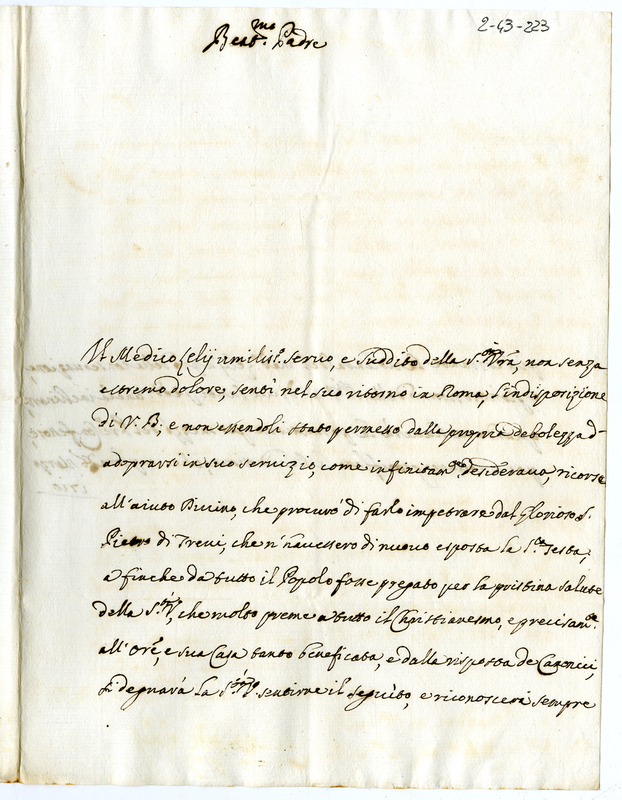 2-43-223
Beat.mo Padre
Il Medico Lelij umilis.o servo, e suddito della S.tà V̄r̄a, non senza
estremo dolore, sentì nel suo ritorno in Roma, l'indisposizione
di V. B., e non essendoli stato permesso dalla propria debolezza d'
adoprarsi in suo servizio, come infinitam.te desiderava, ricorse
all'aiuto Divino, che procurò di farlo impetrare dal Glorioso S.
Pietro di Trevi, che n'havessero di nuovo esposta la S.ta Testa,
a finche da tutto il Popolo fosse pregato per la pristina salute
della S.tà V., che molto preme a tutto il Christianesmo, e precisam.te
all'Ore, e sua Casa tanto beneficata, e dalla risposta de Canonici,
si degnarà la S.tà V. sentirne il seguito, e riconoscerà sempre